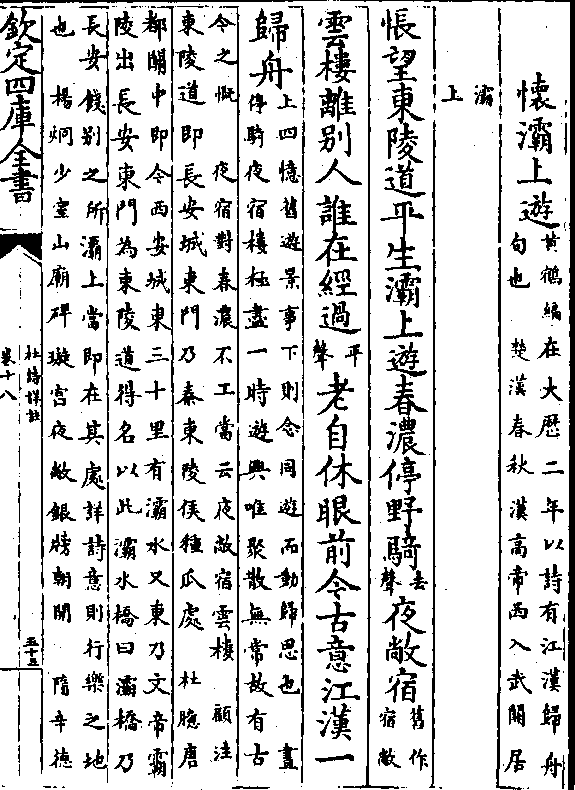 懷灞上遊
黃鶴編在大厯二年以詩有江漢歸舟
句也　楚漢春秋　漢高帝西入武關居
灞
上
悵望東陵道平生灞上遊春濃停野騎去聲夜敞宿舊作宿敞
雲樓離别人誰在經過平聲老自休眼前今古意江漢一
歸舟
上四憶舊遊景事下則念同遊而動歸思也　晝
停騎夜宿樓極盡一時遊興唯聚散無常故有古
今之慨　夜宿對春濃不工當云夜敞宿雲樓　顧注
東陵道即長安城東門乃秦東陵侯種瓜處　杜臆唐
都關中即今西安城東三十里有灞水又東乃文帝霸
陵出長安東門為東陵道得名以此灞水橋曰灞橋乃
長安餞别之所灞上當即在其處詳詩意則行樂之地
也　楊炯少室山廟碑璇宫夜敞銀牓朝開　隋辛德
欽定四庫全書
杜詩詳註
卷十八
五十五